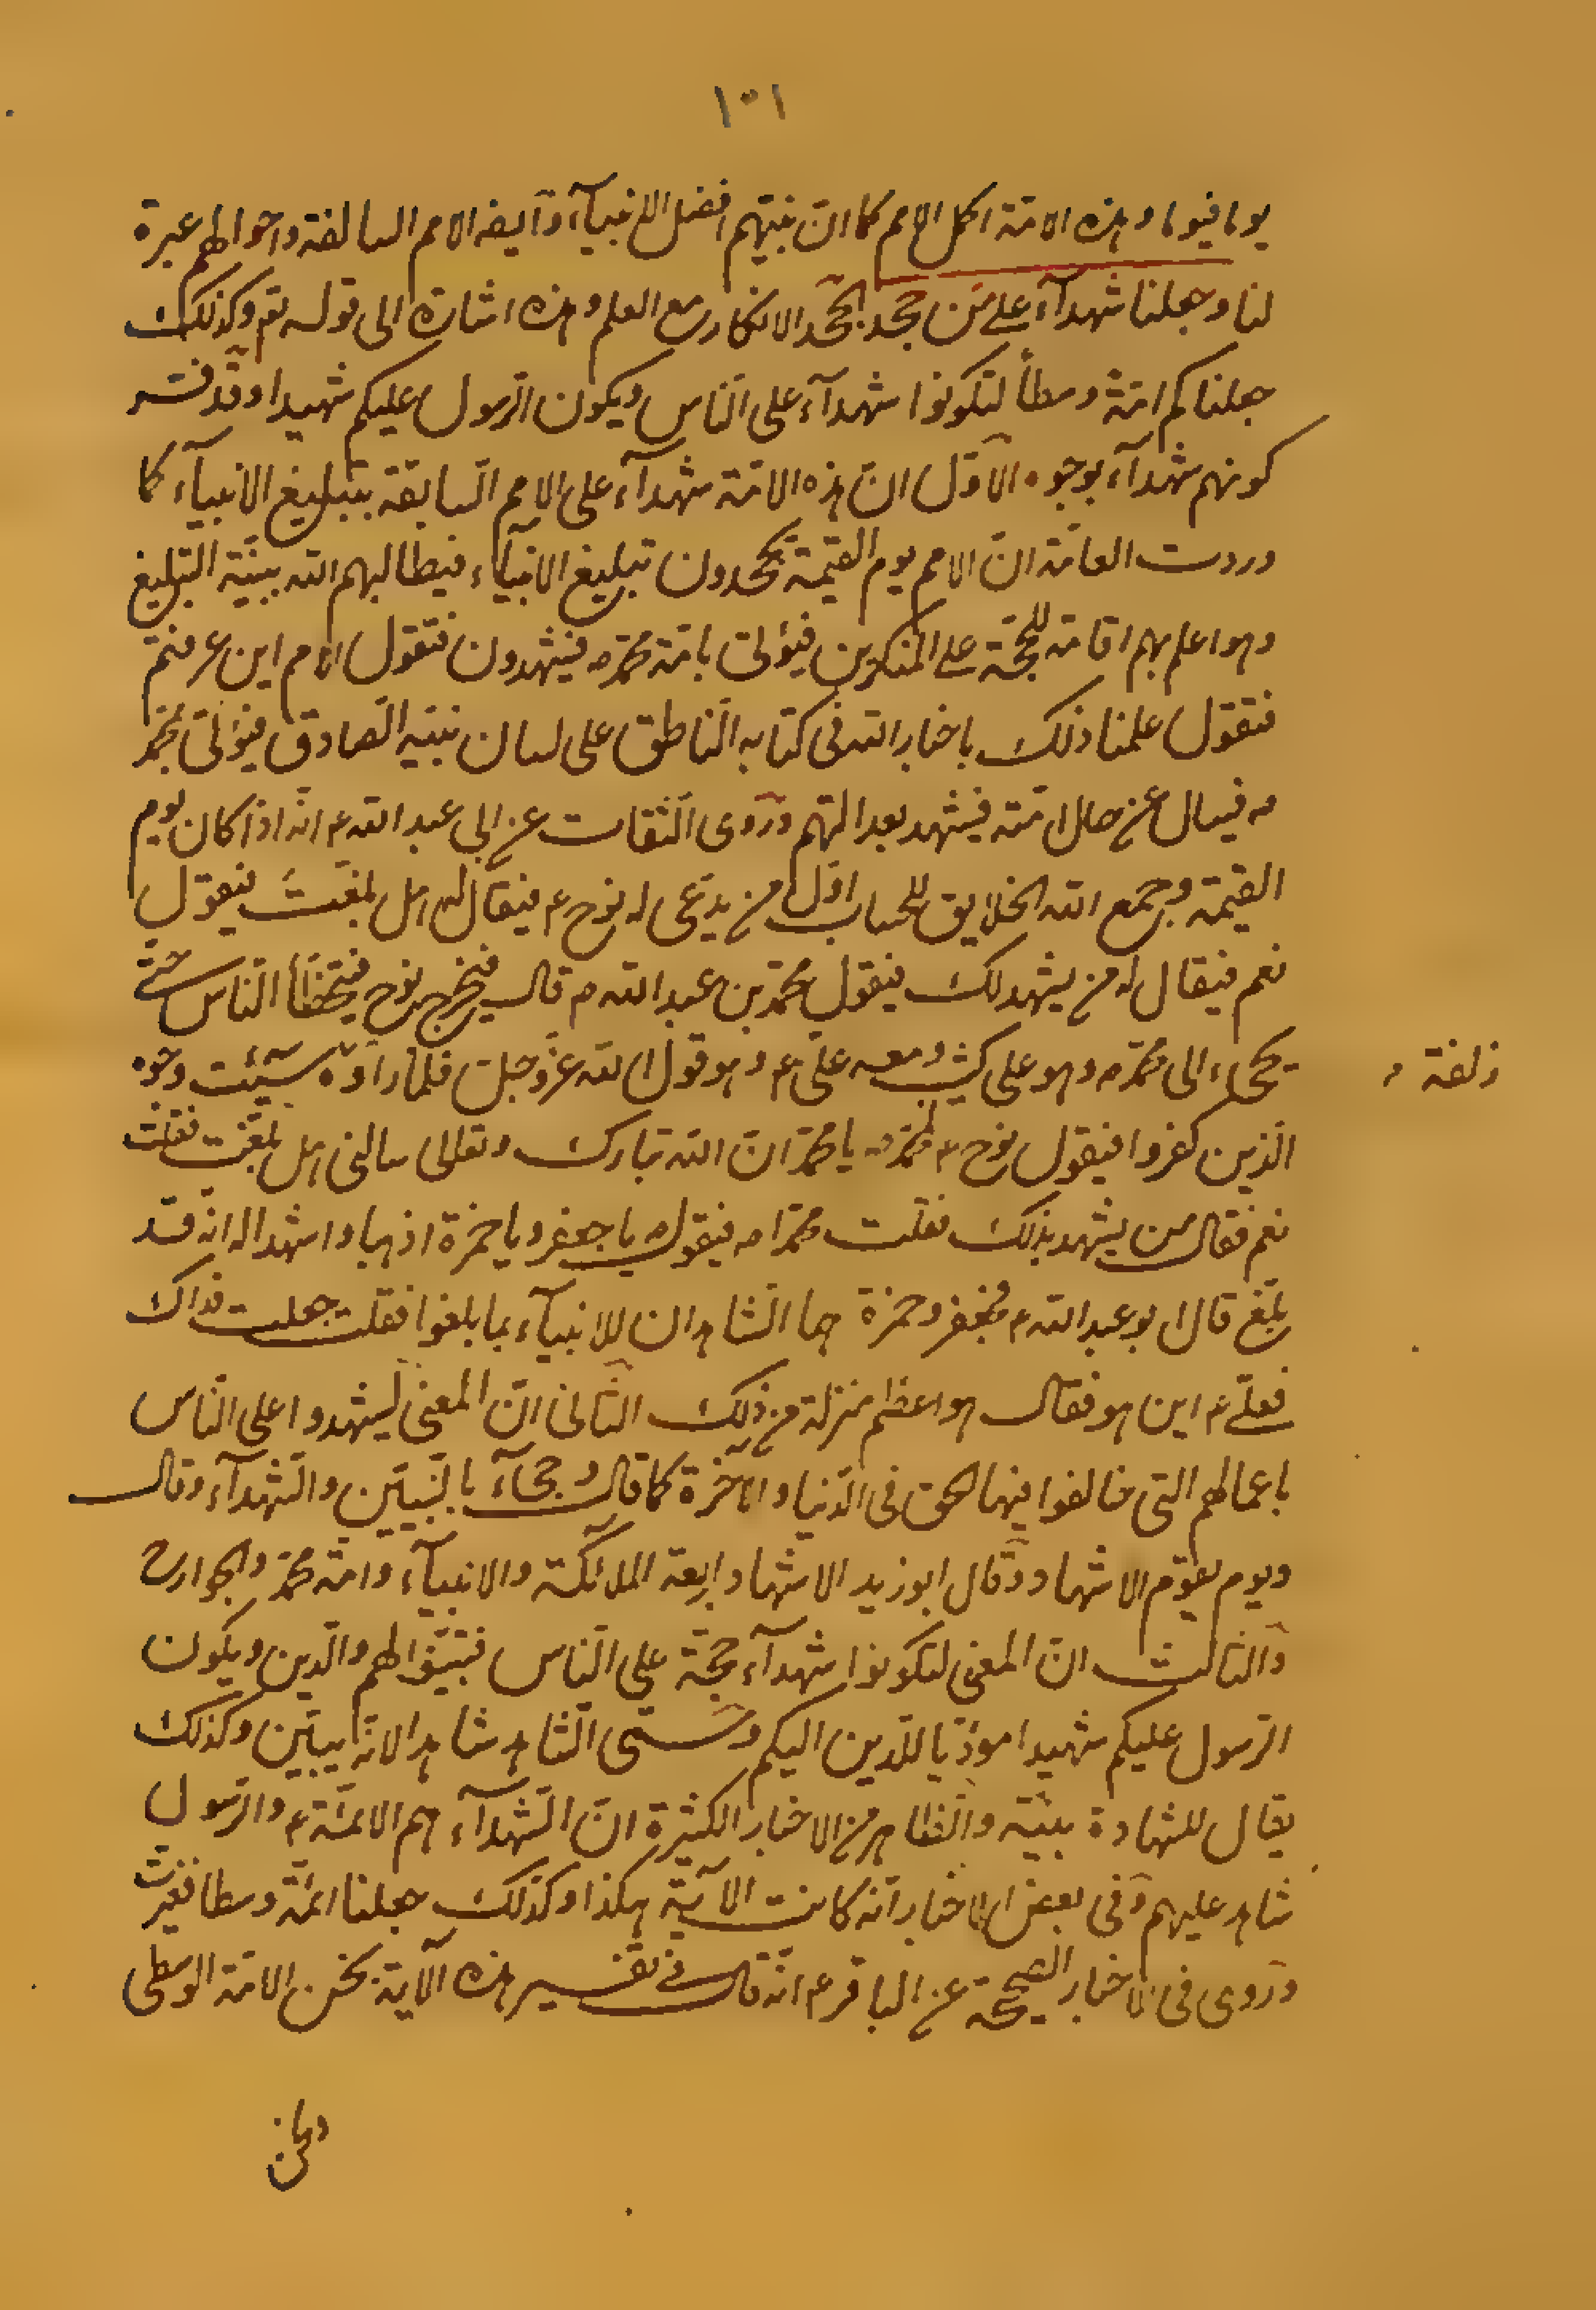 ١٠١
يوما فيوما وهذه الامة اكمل الامم كما ان نبيهم افضل الانبياء وايضا الامم السالفة واحوالهم عبرة
لنا وجعلنا شهدآء على من جحد الجحد الانكار مع العلم وهذه اشارة الى قوله تع وكذلك
جعلناكم امّة وسطاً لتكونوا شهدآء على النّاس ويكون الرّسول عليكم شهيدا وقد فسّر
كونهم شهدآء بوجوه الاوّل انّ هذه الامّة شهدآء على الامم السّابقة بتبليغ الانبيآء كما
وردت العامّة انّ الامم يوم القيمة يجحدون تبليغ الانبيآء فيطالبهم الله ببيّنة التّبليغ
وهو اعلم بهم اقامة للحجّة على المنكرين فيؤتى بامّة محمّد ص فيشهدون فتقول الامم اين عرفتم
فتقول علمنا ذلك باخبار الله فى كتابه النّاطق على لسان نبيّه الصّادق فيؤتى بمحمّد
ص فيسال عن حال امّته فيشهد بعدالتهم وروى الثّقات عن ابى عبد الله ع انّه اذا كان يوم
القيمة وجمع الله الخلايق للحساب اوّل من يدعى له نوح ع فيقال له هل بلغت فيقول
نعم فيقال له من يشهد لك فيقول محمّد بن عبد الله ص قال فيخرج نوح فيتخطّأ النّاس حتّى
يجىء الى محمّد ص وهو على كثيب ومعه علىّ ع وهو قول الله عزّ وجلّ فلمّا راوه سيئت وجوه
زلفة
الّذين كفروا فيقول نوح ع لمحمّد ص يا محمّد انّ الله تبارك وتعالى سالنى هل بلّغت فقلت
نعم فقال من يشهد بذلك فقلت محمّدا ص فيقول ص يا جعفر ويا حمزة اذهبا واشهدا له انه قد
بلّغ قال ابو عبد الله ع فجعفر وحمزة هما الشّاهدان للانبيآء بما بلغوا فقلت جعلت فداك
فعلىّ ع اين هو فقال هو اعظم منزلة من ذلك الثّانى انّ المعنى ليشهدوا على النّاس
باعمالهم التى خالفوا فيها الحق فى الدّنيا والاخرة كما قال وجىء بالنّبيّين والشّهدآء وقال
ويوم يقوم الاشهاد وقال ابو زيد الاشهاد اربعة الملائكة والانبيآء وامّة محمّد والجوارح
والثالث انّ المعنى لتكونوا شهدآء حجّة على النّاس فتبيّنوا لهم والدين ويكون
الرّسول عليكم شهيدا مودّيا للدّين اليكم وسمّى الشّاهد شاهدا لانّه يبيّن وكذلك
يقال للشهادة بيّنة والظّاهر من الاخبار الكثيرة انّ الشّهدآء هم الائمّة ع والرّسول
شاهد عليهم وفى بعض الاخبار انّه كانت الآية هكذا وكذلك جعلنا ائمّة وسطا فغيّرت
وروى فى الاخبار الصحيحة عن الباقر ع انّه قال فى تفسير هذه الآية نحن الامّة الوسطى
ونحن